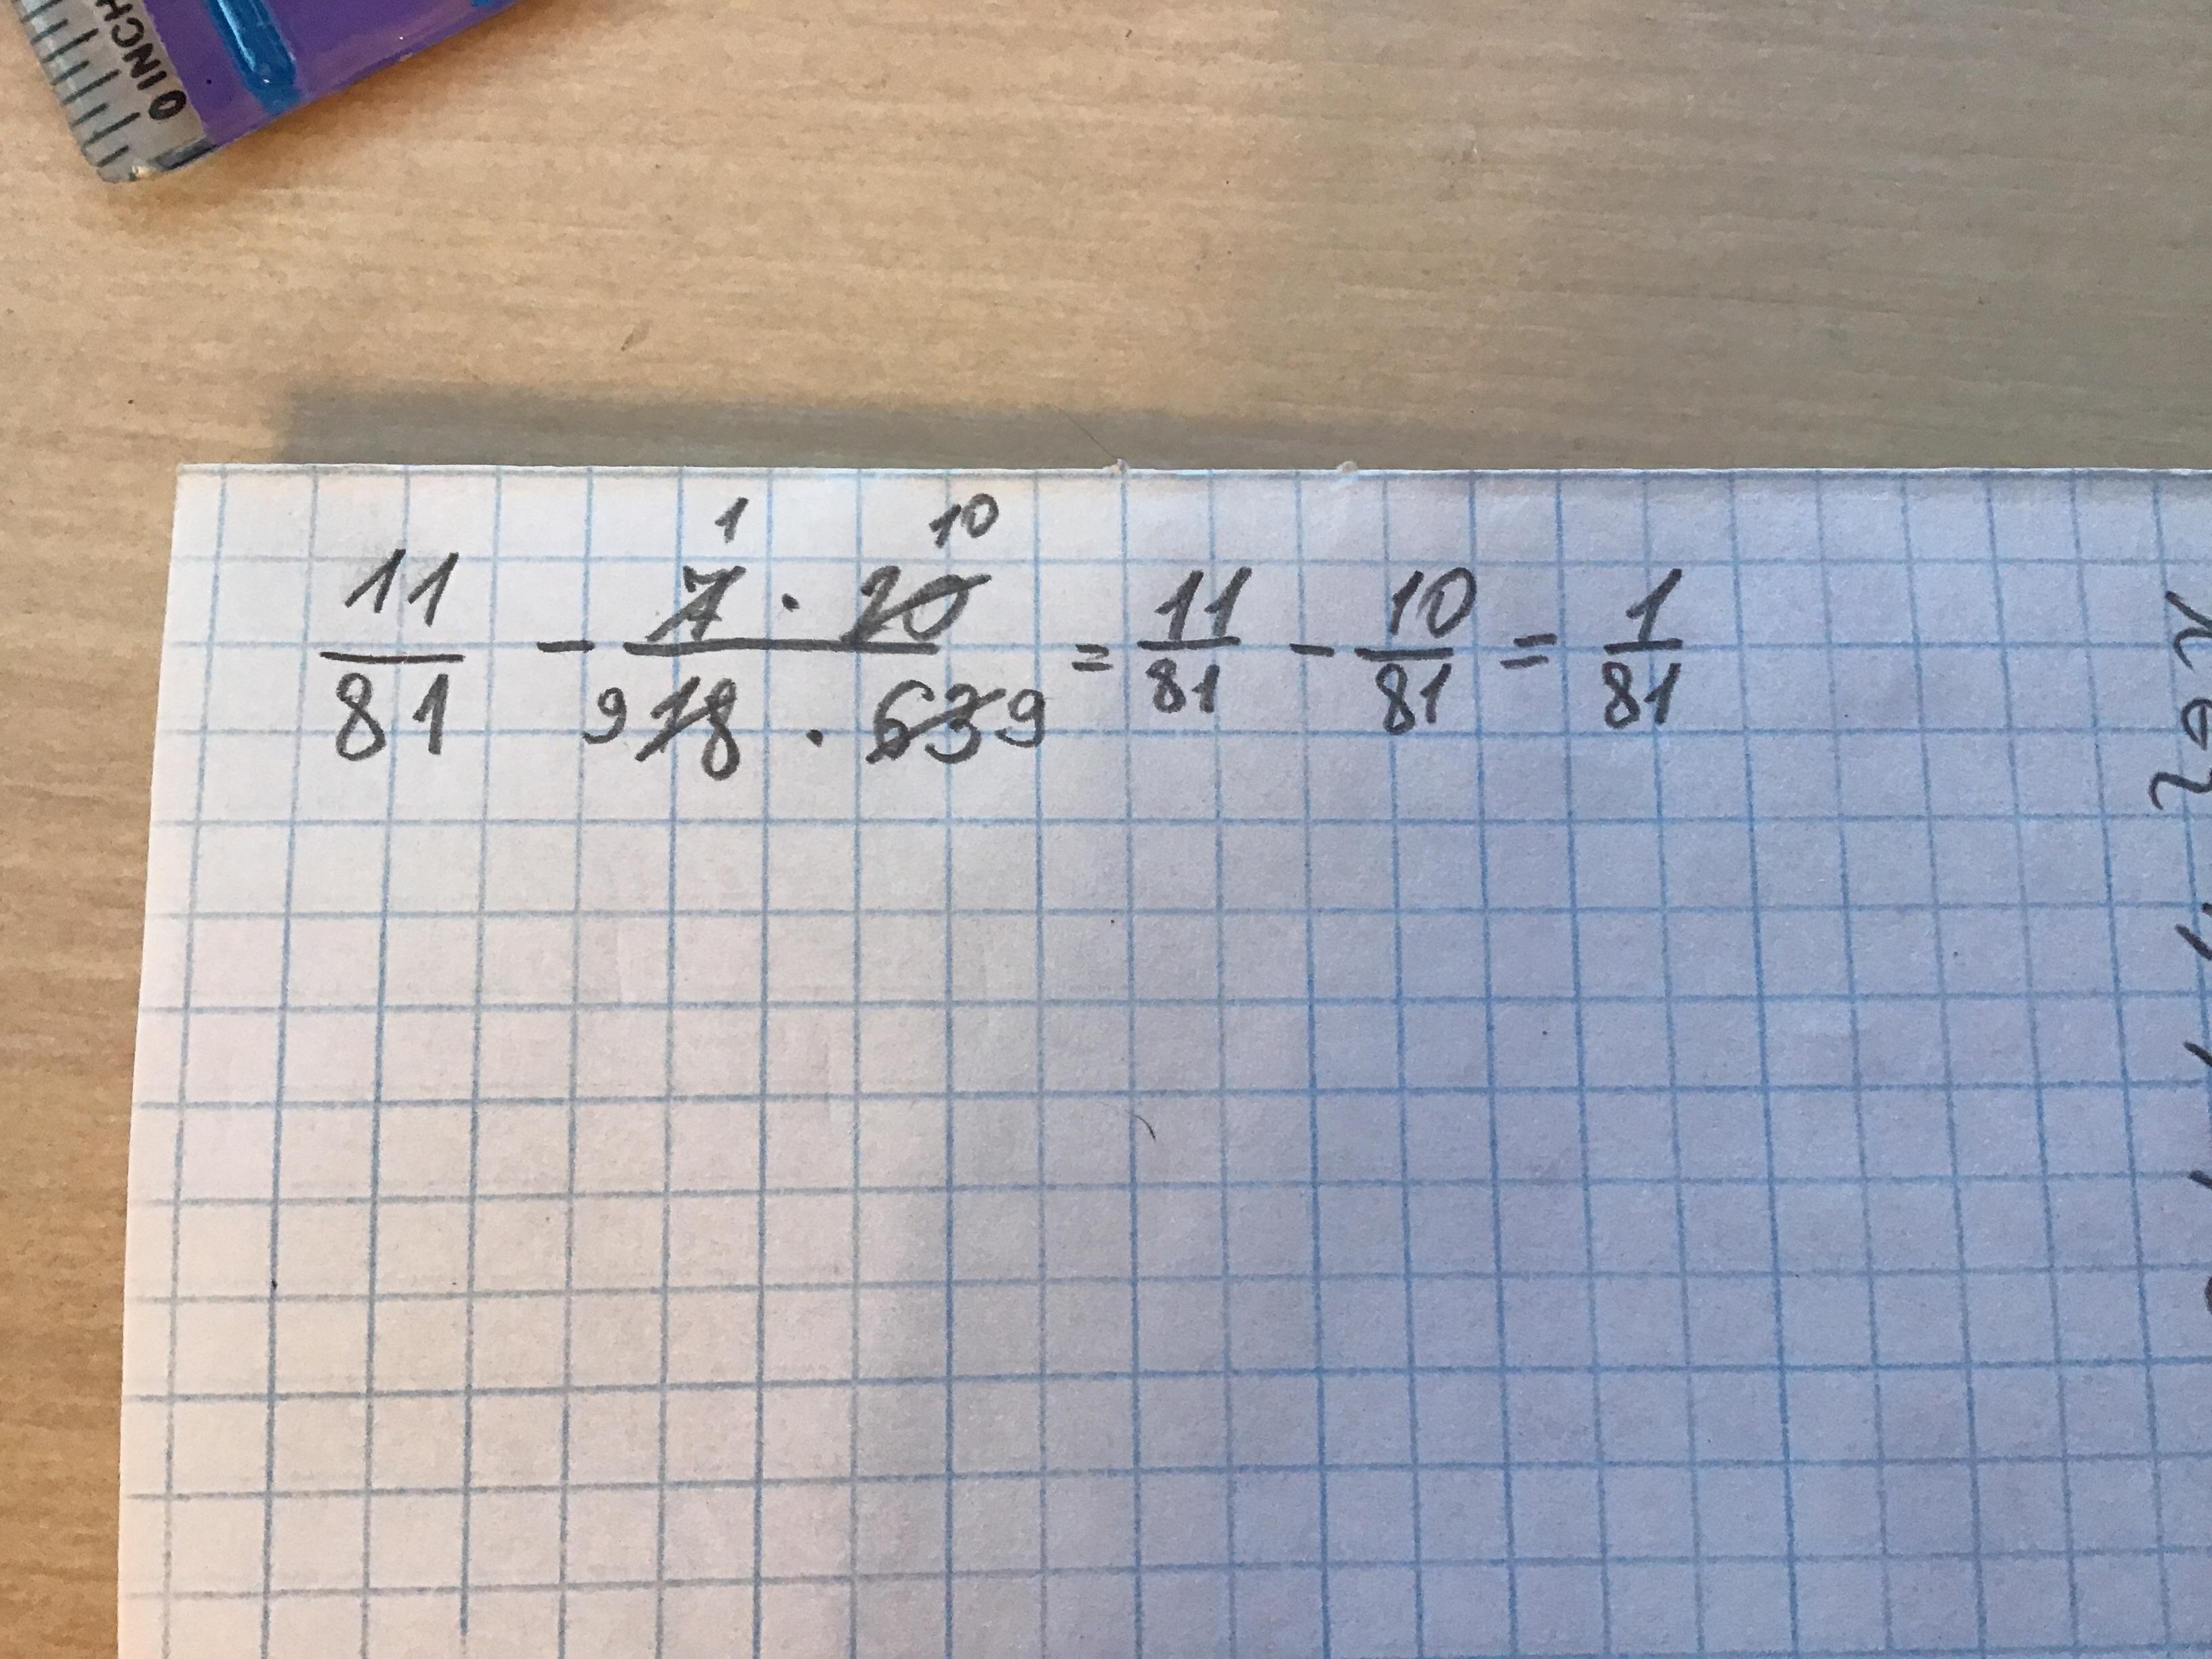 0 INCH
1 10
11/81 - 7 · 20 / 9 18 · 63 9 = 11/81 - 10/81 = 1/81